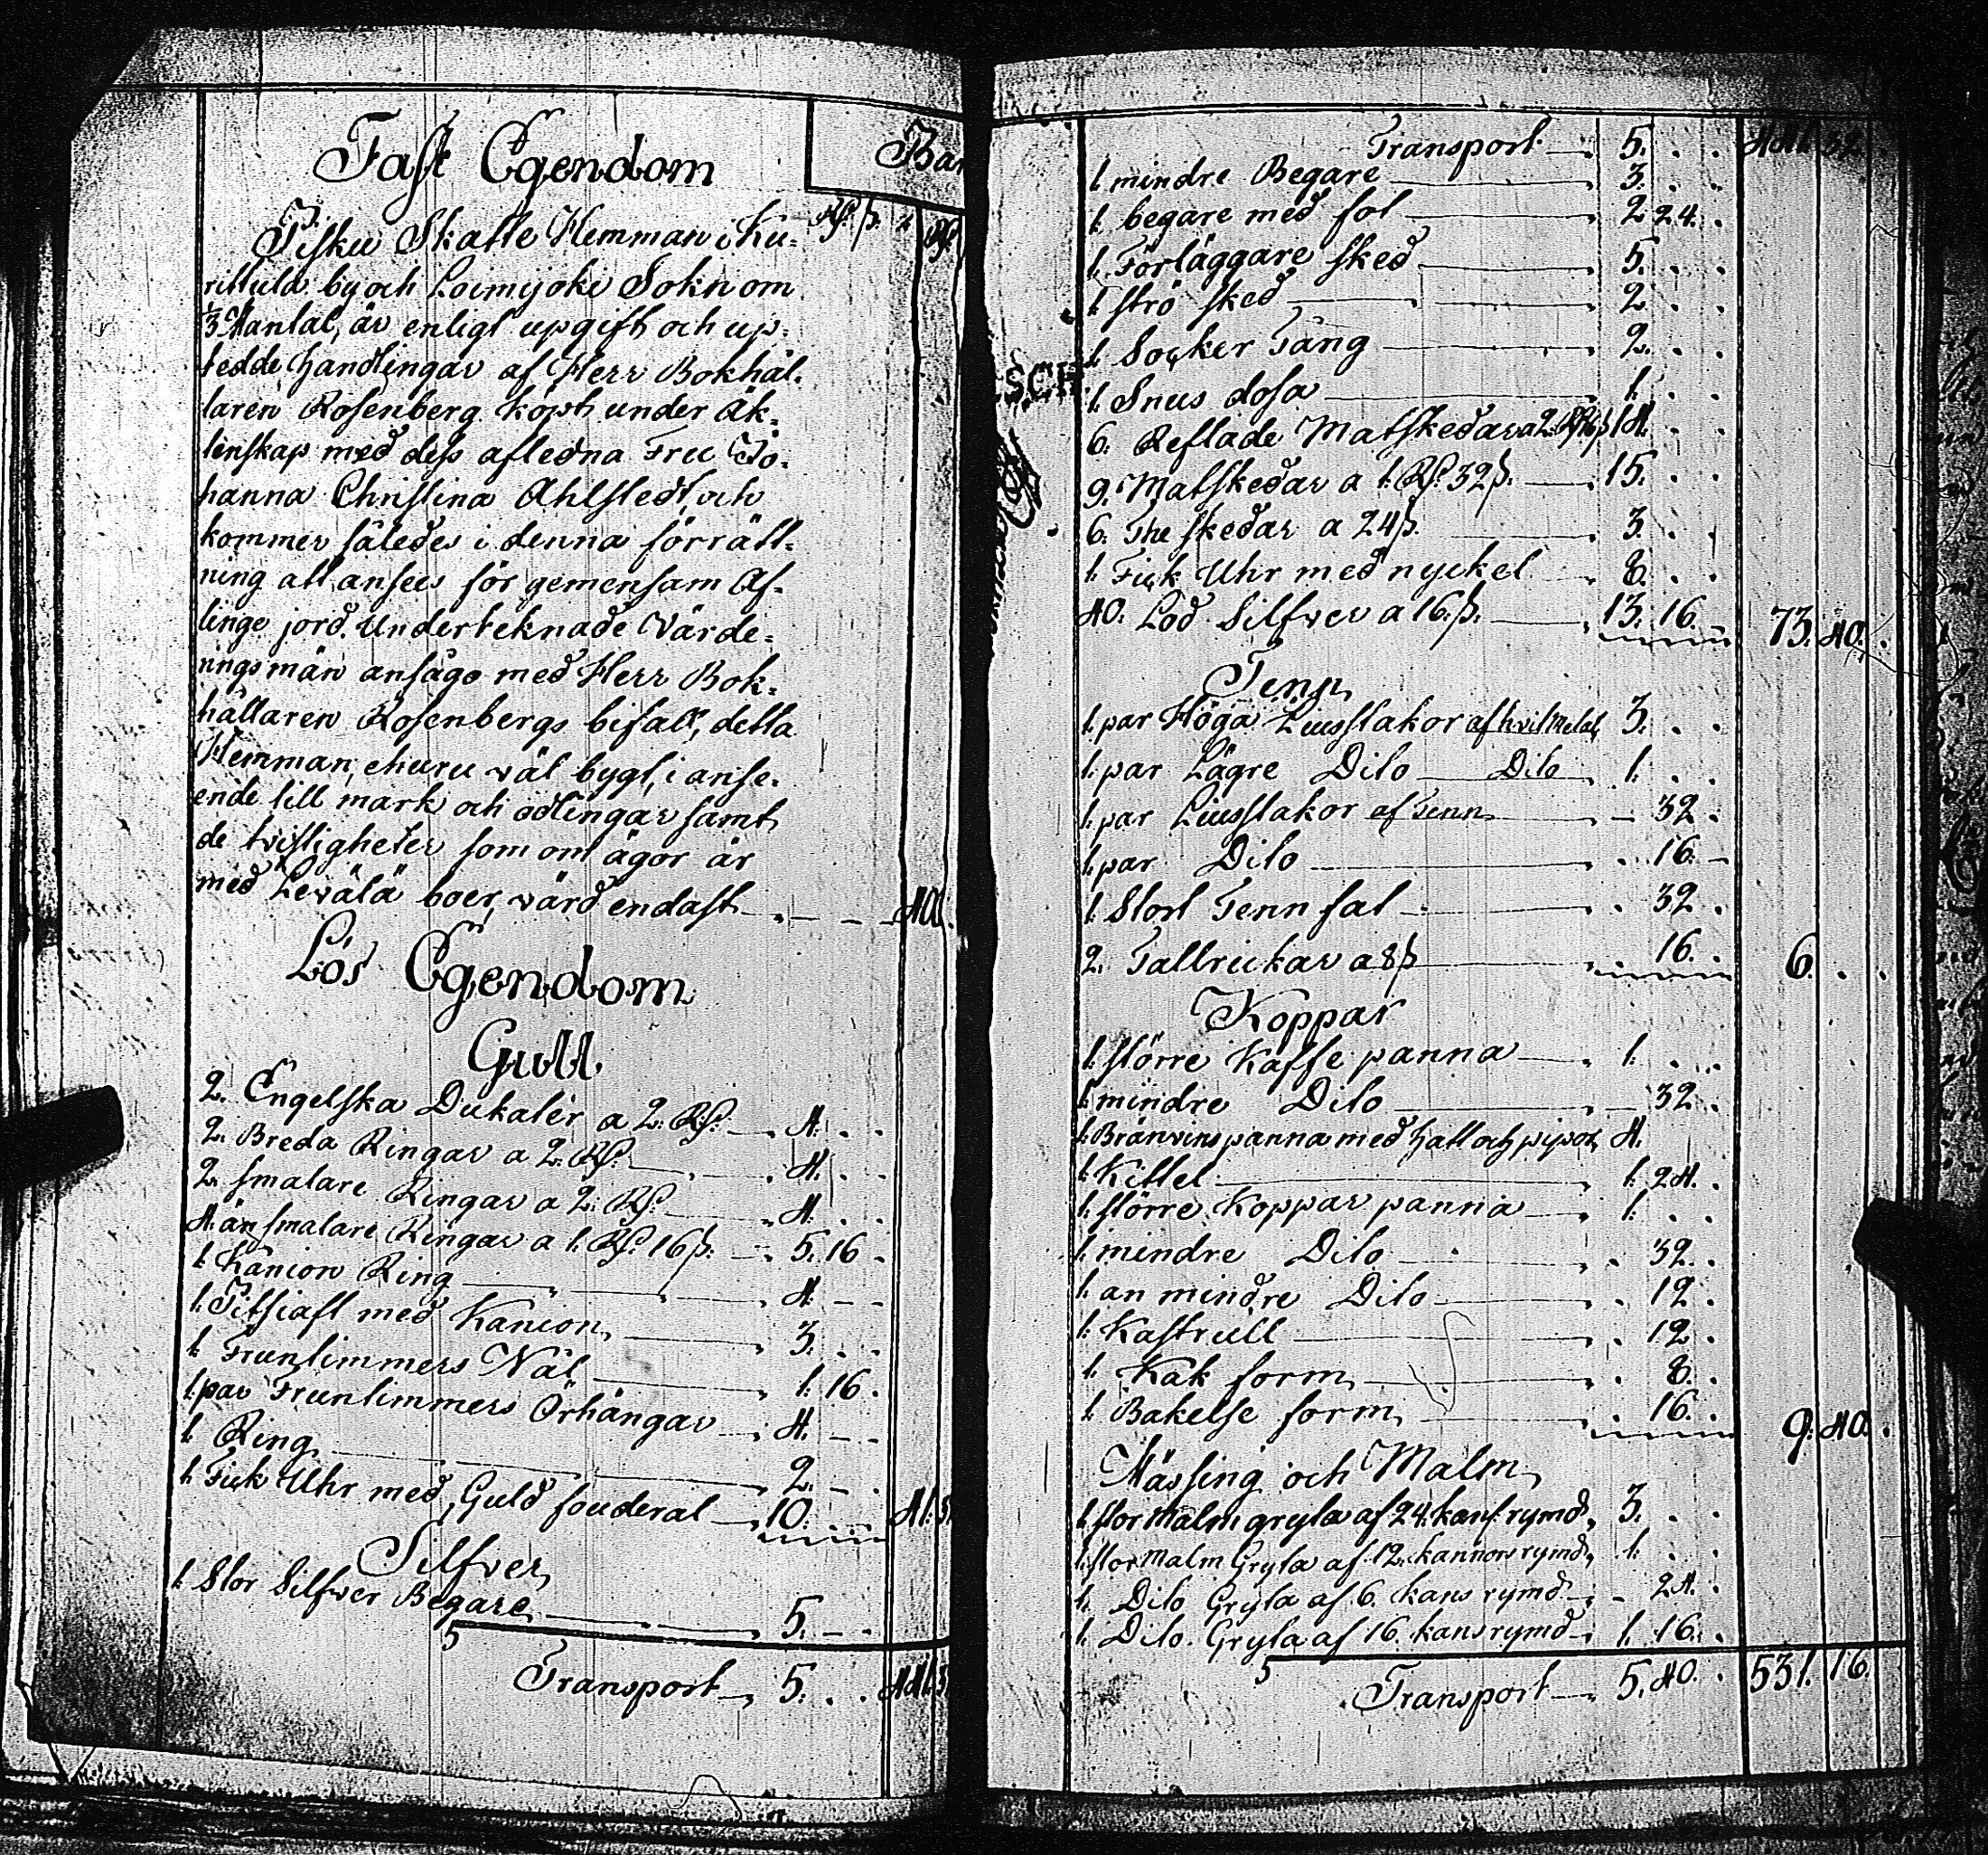 Fast Egendom
Ban
Pisku Skatte Hemman i Ku-
rittula by och Loimijoki Sokn om
1/3 Mantal, är enligt upgift och up-
tedde handlingar af Herr Bokhål-
laren Rosenberg köpt under Äk-
tenskap med dess afledna Fru Jo-
hanna Christina Ahlstedt, och
kommer således i denna förrätt-
ning att ansees för gemensam Af-
linge jord. Underteknade Värde-
ningsmän ansågo med Herr Bok-
hållaren Rosenbergs bifall, detta
Hemman, ehuru väl bygt, i anse-
ende till mark och odlingar samt
de tvistigheter som om ägor är
med Levälä boer, värd endast 400.
Lös Egendom
Gull
2. Engelska Dukater a 2. Rd. 4. . .
2. Breda Ringar a 2. Rd. 4. . .
2. smalare Ringar a 2. Rd. 4. . .
4. än smalare Ringar a 1. Rd. 16 ß. 5. 16 .
1. Kanion Ring 4. - -
1. Pitsiaft med Kanion 3. . .
1. Fruntimmers Nål 1. 16 .
1. par Fruntimmers Örhängar 4. - -
1. Ring 2. - .
1. Fick Uhr med Guld fouderal 10. 41. 3
Silfver
1. Stor Silfver Begare 5. - .
5
Transport 5. . . 441. 3
Transport 5. . . 441. 32
1. mindre Begare 3. . .
1. begare med fot 2 24. .
1. Förläggare sked 5. . .
1. strö sked 2. . .
1. Socker Tång 2. . .
1. Snus dosa 1. . .
6. Reflade Matskedar a 2. Rd 16 ß 14. . .
9. Matskedar a 1. Rd. 32 ß. 15. . .
6. The skedar a 24 ß. 3. . .
1. Fick Uhr med nyckel 8. . .
40. Lod Silfver a 16. ß. 13. 16. 73. 40.
Tenn
1. par Höga Liusstakor af hvit Metal 3. . .
1. par Lägre Dito Dito 1. . .
1. par Liusstakor af Tenn - 32 .
1. par Dito . 16. -
1. Stort Tenn fat . 32 .
2. Tallrickar a 8 ß . 16. . 6. . .
Koppar
1. större Kaffe panna 1. . .
1. mindre Dito - 32. .
1. Bränvins panna med hatt och pipor 4.
1. Kittel 1. 24. .
1. större Koppar panna 1. . .
1. mindre Dito . 32. .
1. än mindre Dito . 12 .
1. Kastrull . 12 .
1. Kak form . 8. .
1. Bakelse form . 16. . 9. 40. .
Mässing och Malm
1. stor Malm gryta af 24. kans rymd 3. . .
1. stor Malm Gryta af 12. kannors rymd 1. . .
1. Dito Gryta af 6. kans rymd - 24. .
1. Dito. Gryta af 16. kans rymd 1. 16. .
5
Transport 5. 40. . 531. 16.